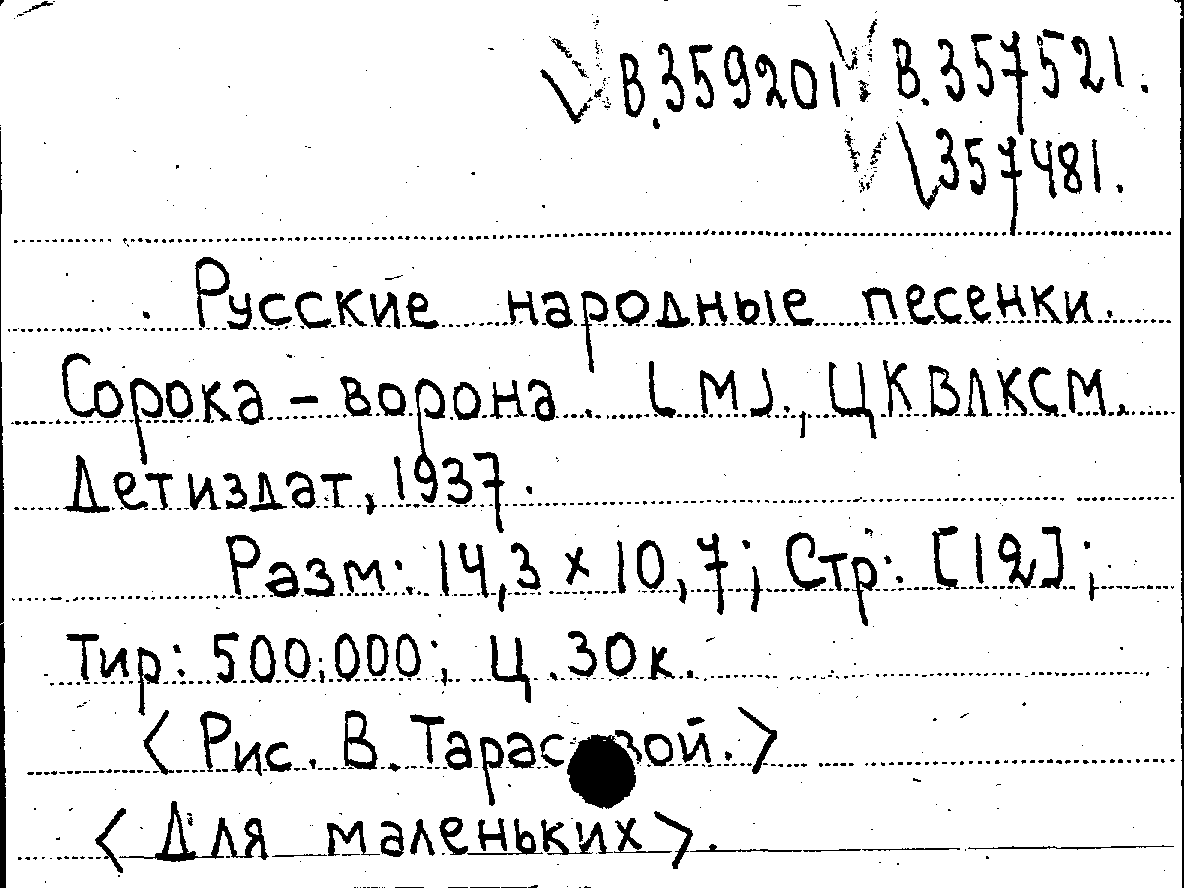 В.359201 В.357521.
357481.
Русские народные песенки.
Сорока - ворона. [М]., ЦКВЛКСМ.
Детиздат, 1937.
Разм: 14,3 x 10,7; Стр: [12];
Тир: 500.000; Ц.30к.
<Рис. В.
<Для маленьких>.